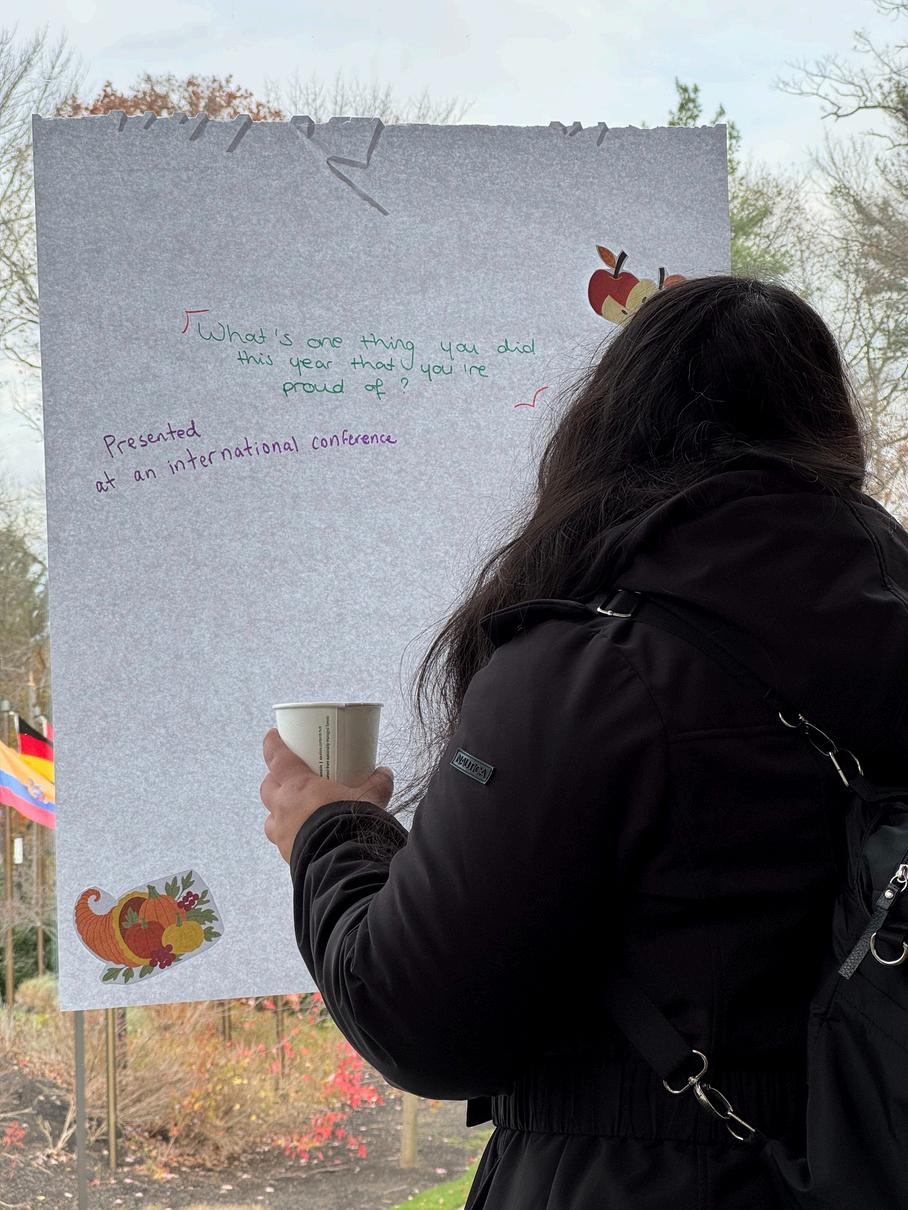 What's one thing you did
this year that you're
proud of?
Presented
at an international conference
NAUTICA